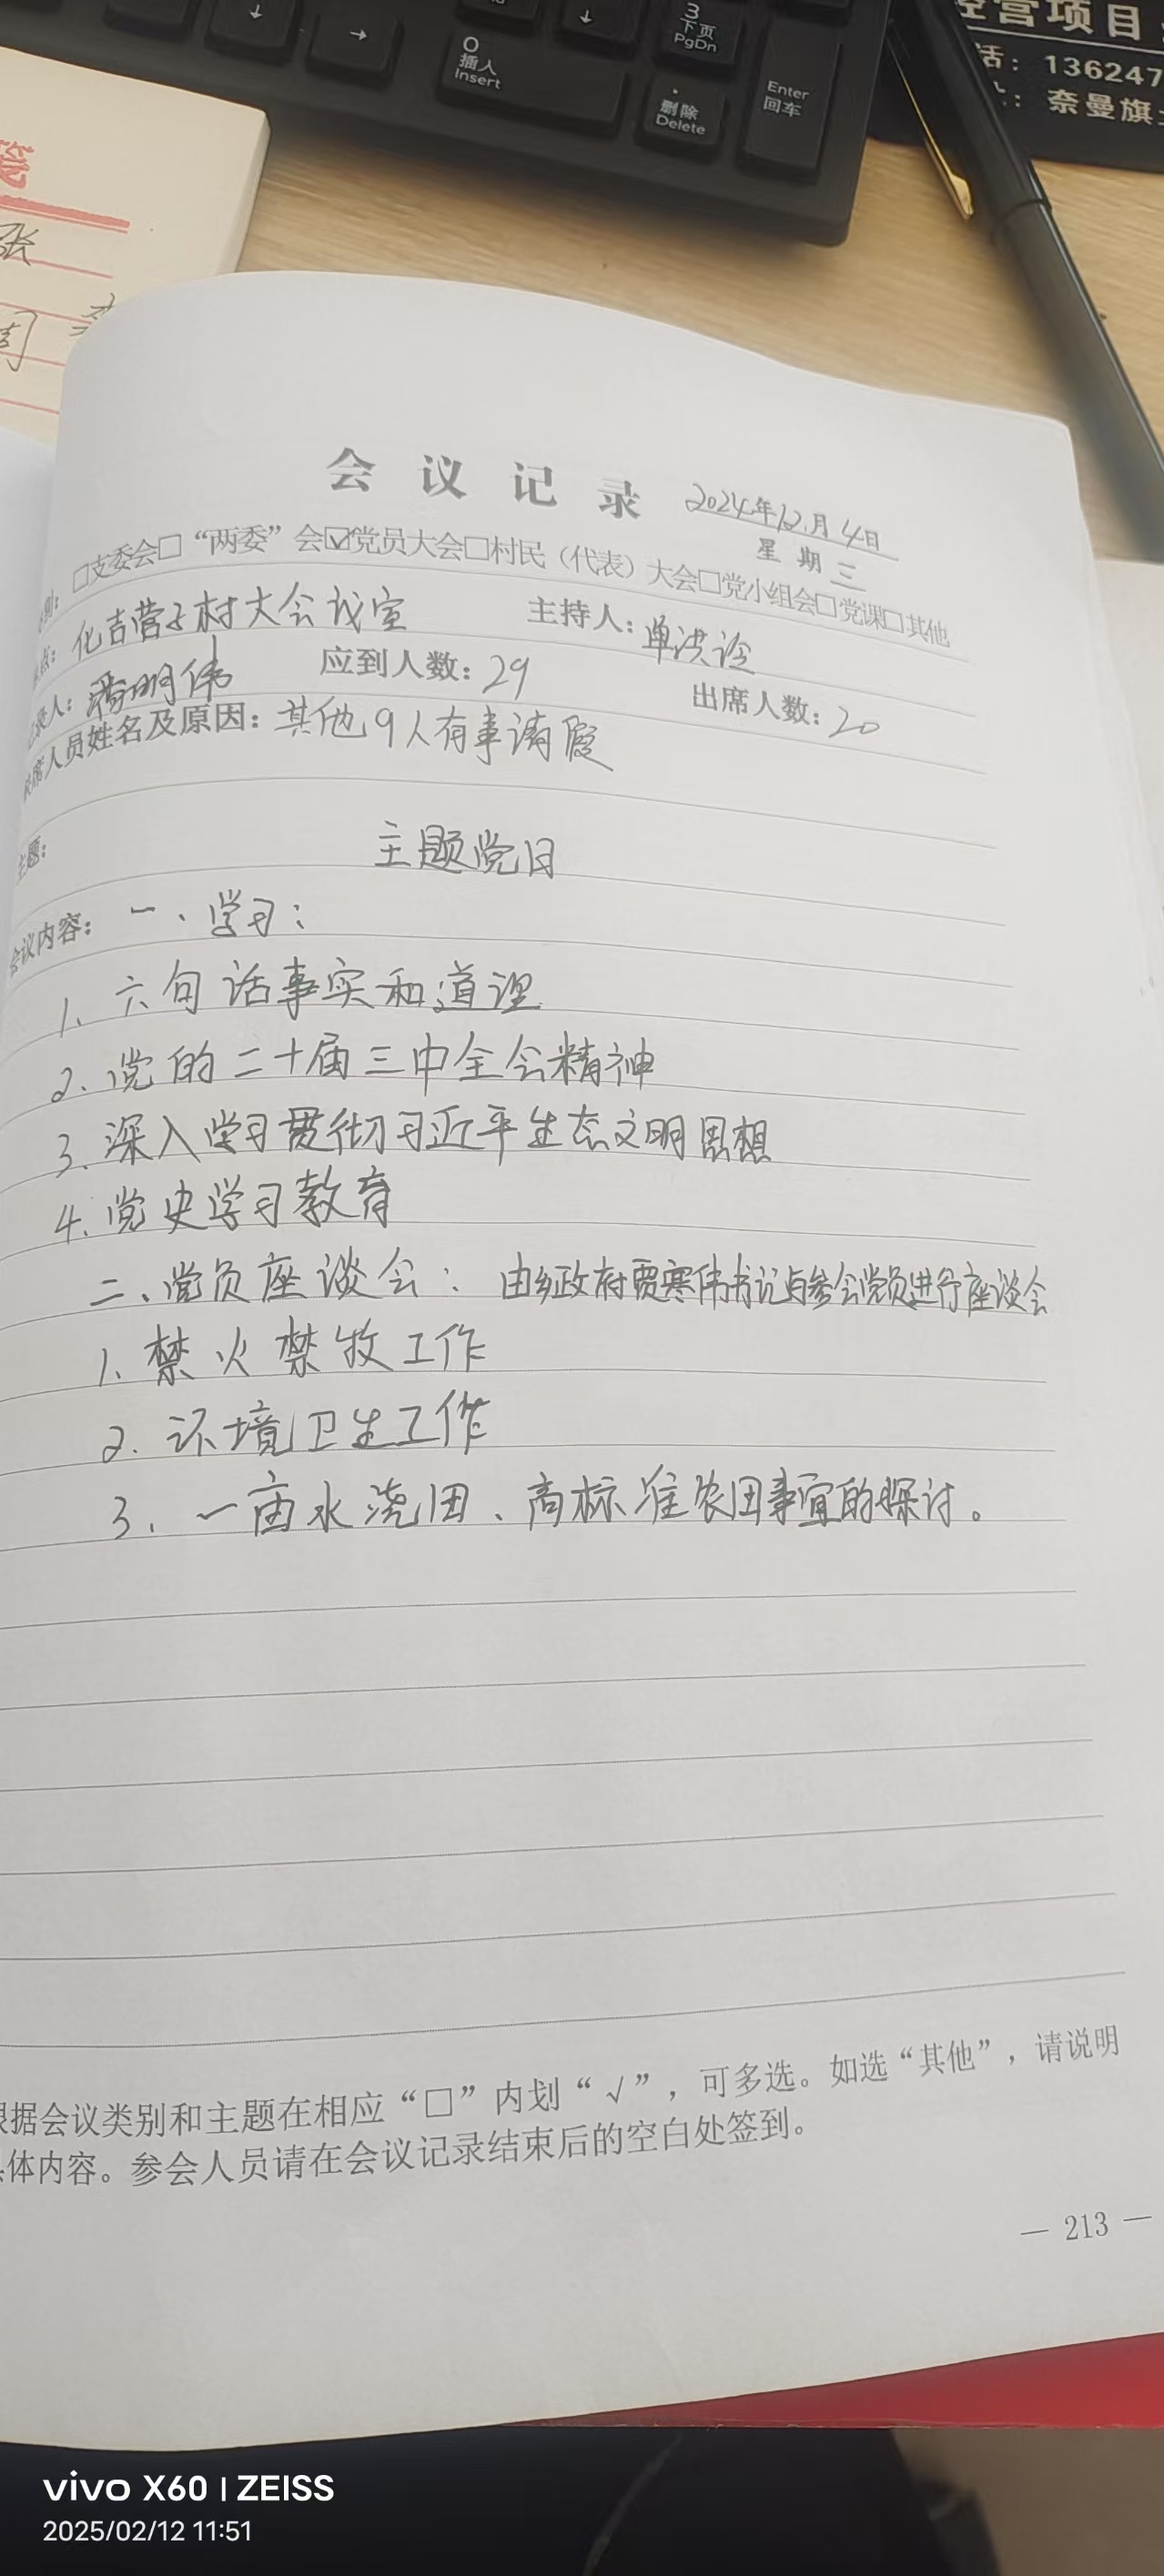 ↓
↓
3
下页
PgDn
→
0
插入
Insert
Enter
回车
.
删除
Delete
经营项目
话: 136247
: 奈曼旗
笺
张
周
会议记录
2024年12月4日
星期三
别: □支委会□“两委”会☑党员大会□村民（代表）大会□党小组会□党课□其他
点: 化吉营子村大会议室 主持人: 单洪
录人: 潘明伟 应到人数: 29 出席人数: 20
缺席人员姓名及原因: 其他9人有事请假
主题: 主题党日
会议内容: 一、学习:
1. 六句话事实和道理
2. 党的二十届三中全会精神
3. 深入学习贯彻习近平生态文明思想
4. 党史学习教育
二、党员座谈会: 由乡政府贾寒伟书记与参会党员进行座谈会
1. 禁火禁牧工作
2. 环境卫生工作
3. 一亩水浇田、高标准农田事宜的探讨。
根据会议类别和主题在相应“□”内划“√”，可多选。如选“其他”，请说明
具体内容。参会人员请在会议记录结束后的空白处签到。
— 213 —
vivo X60 | ZEISS
2025/02/12 11:51